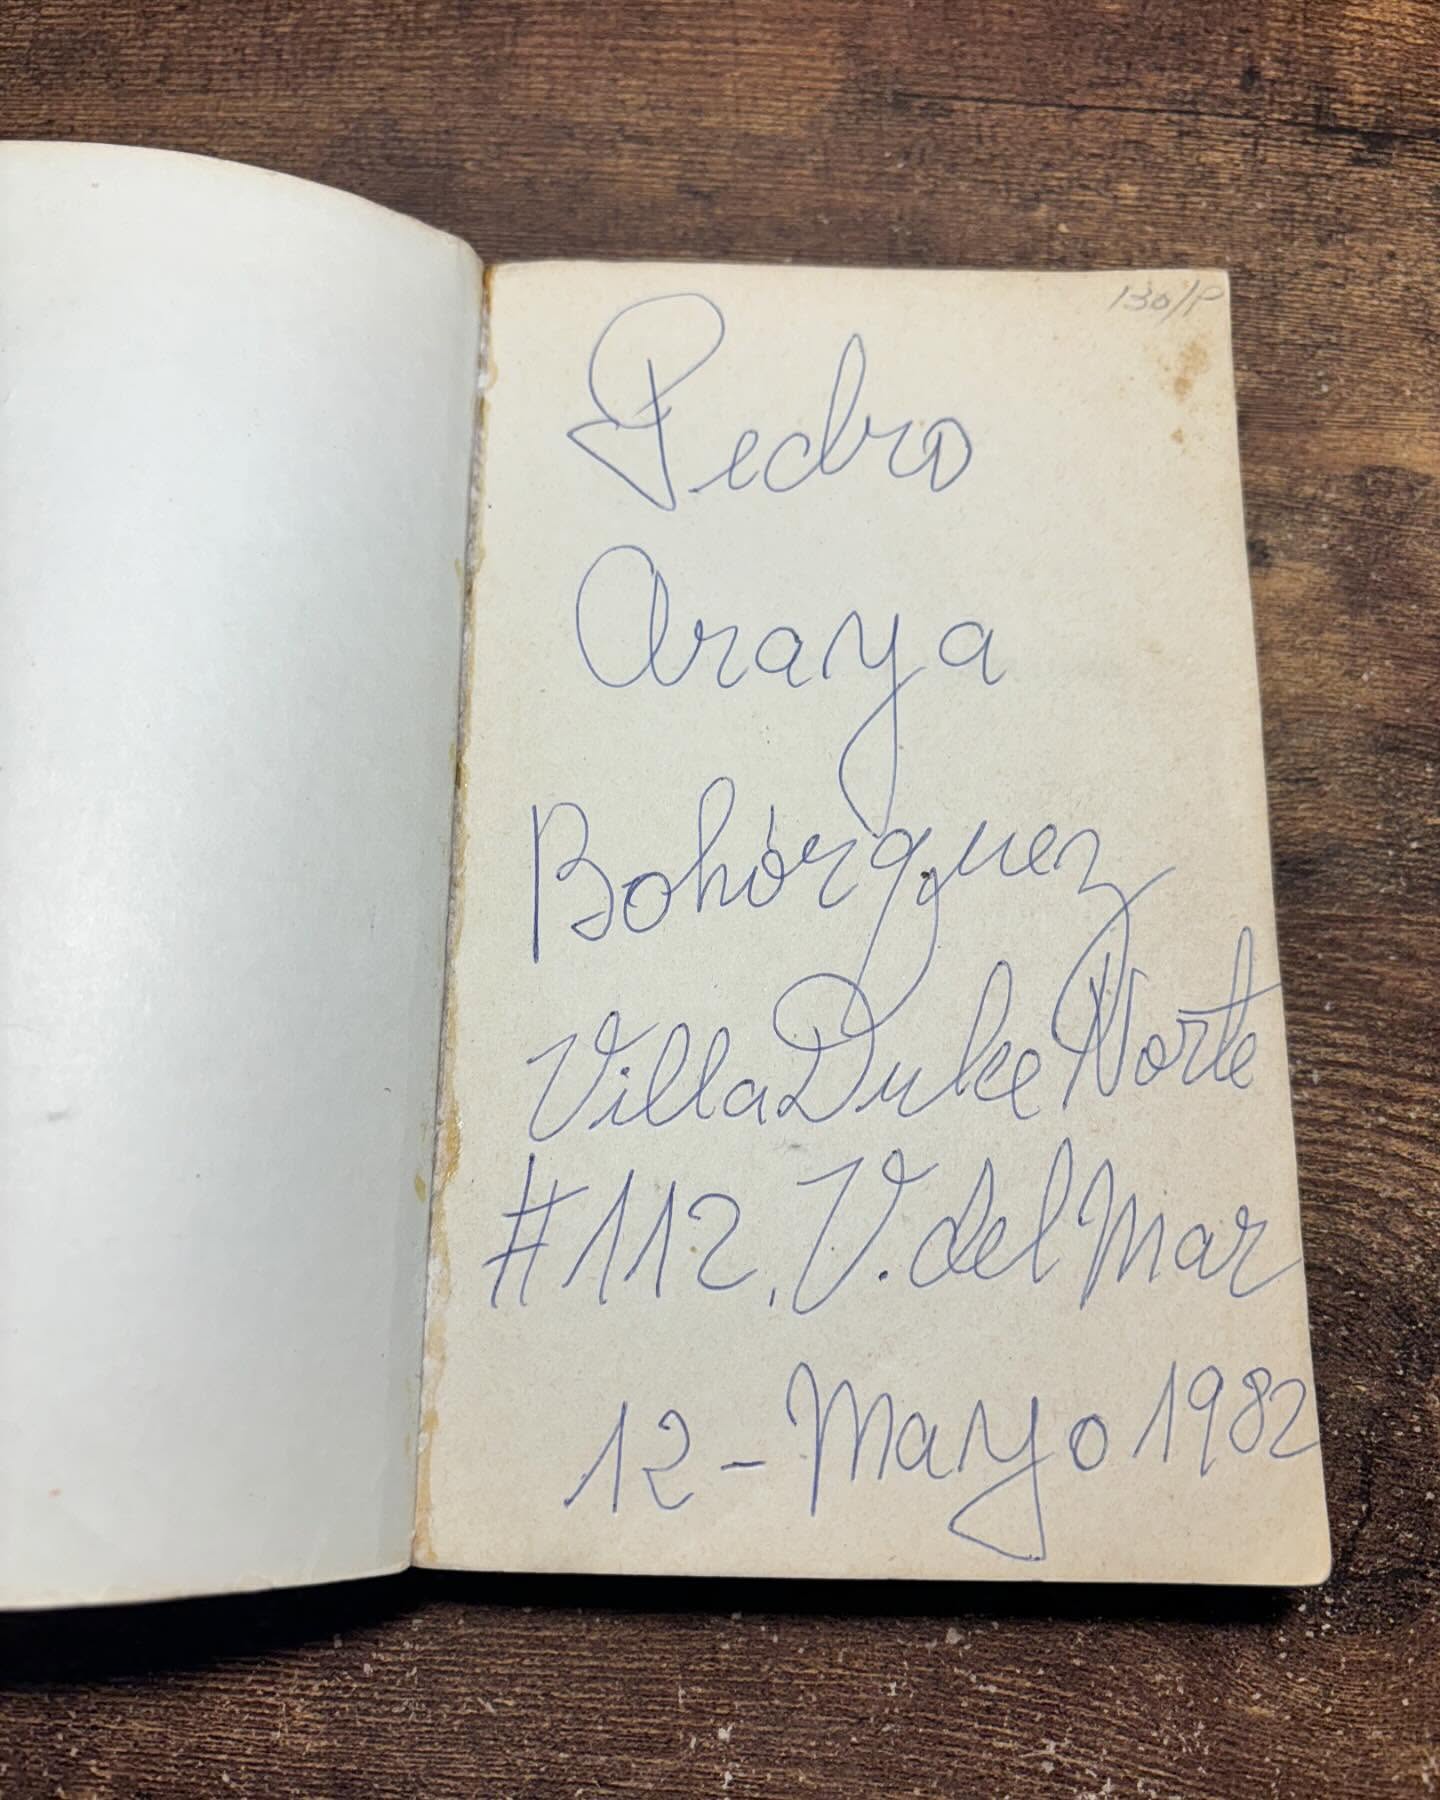 130/P
Pedro
Araya
Bohórquez
Villa Duke Norte
#112, V. del Mar
12 - Mayo 1982